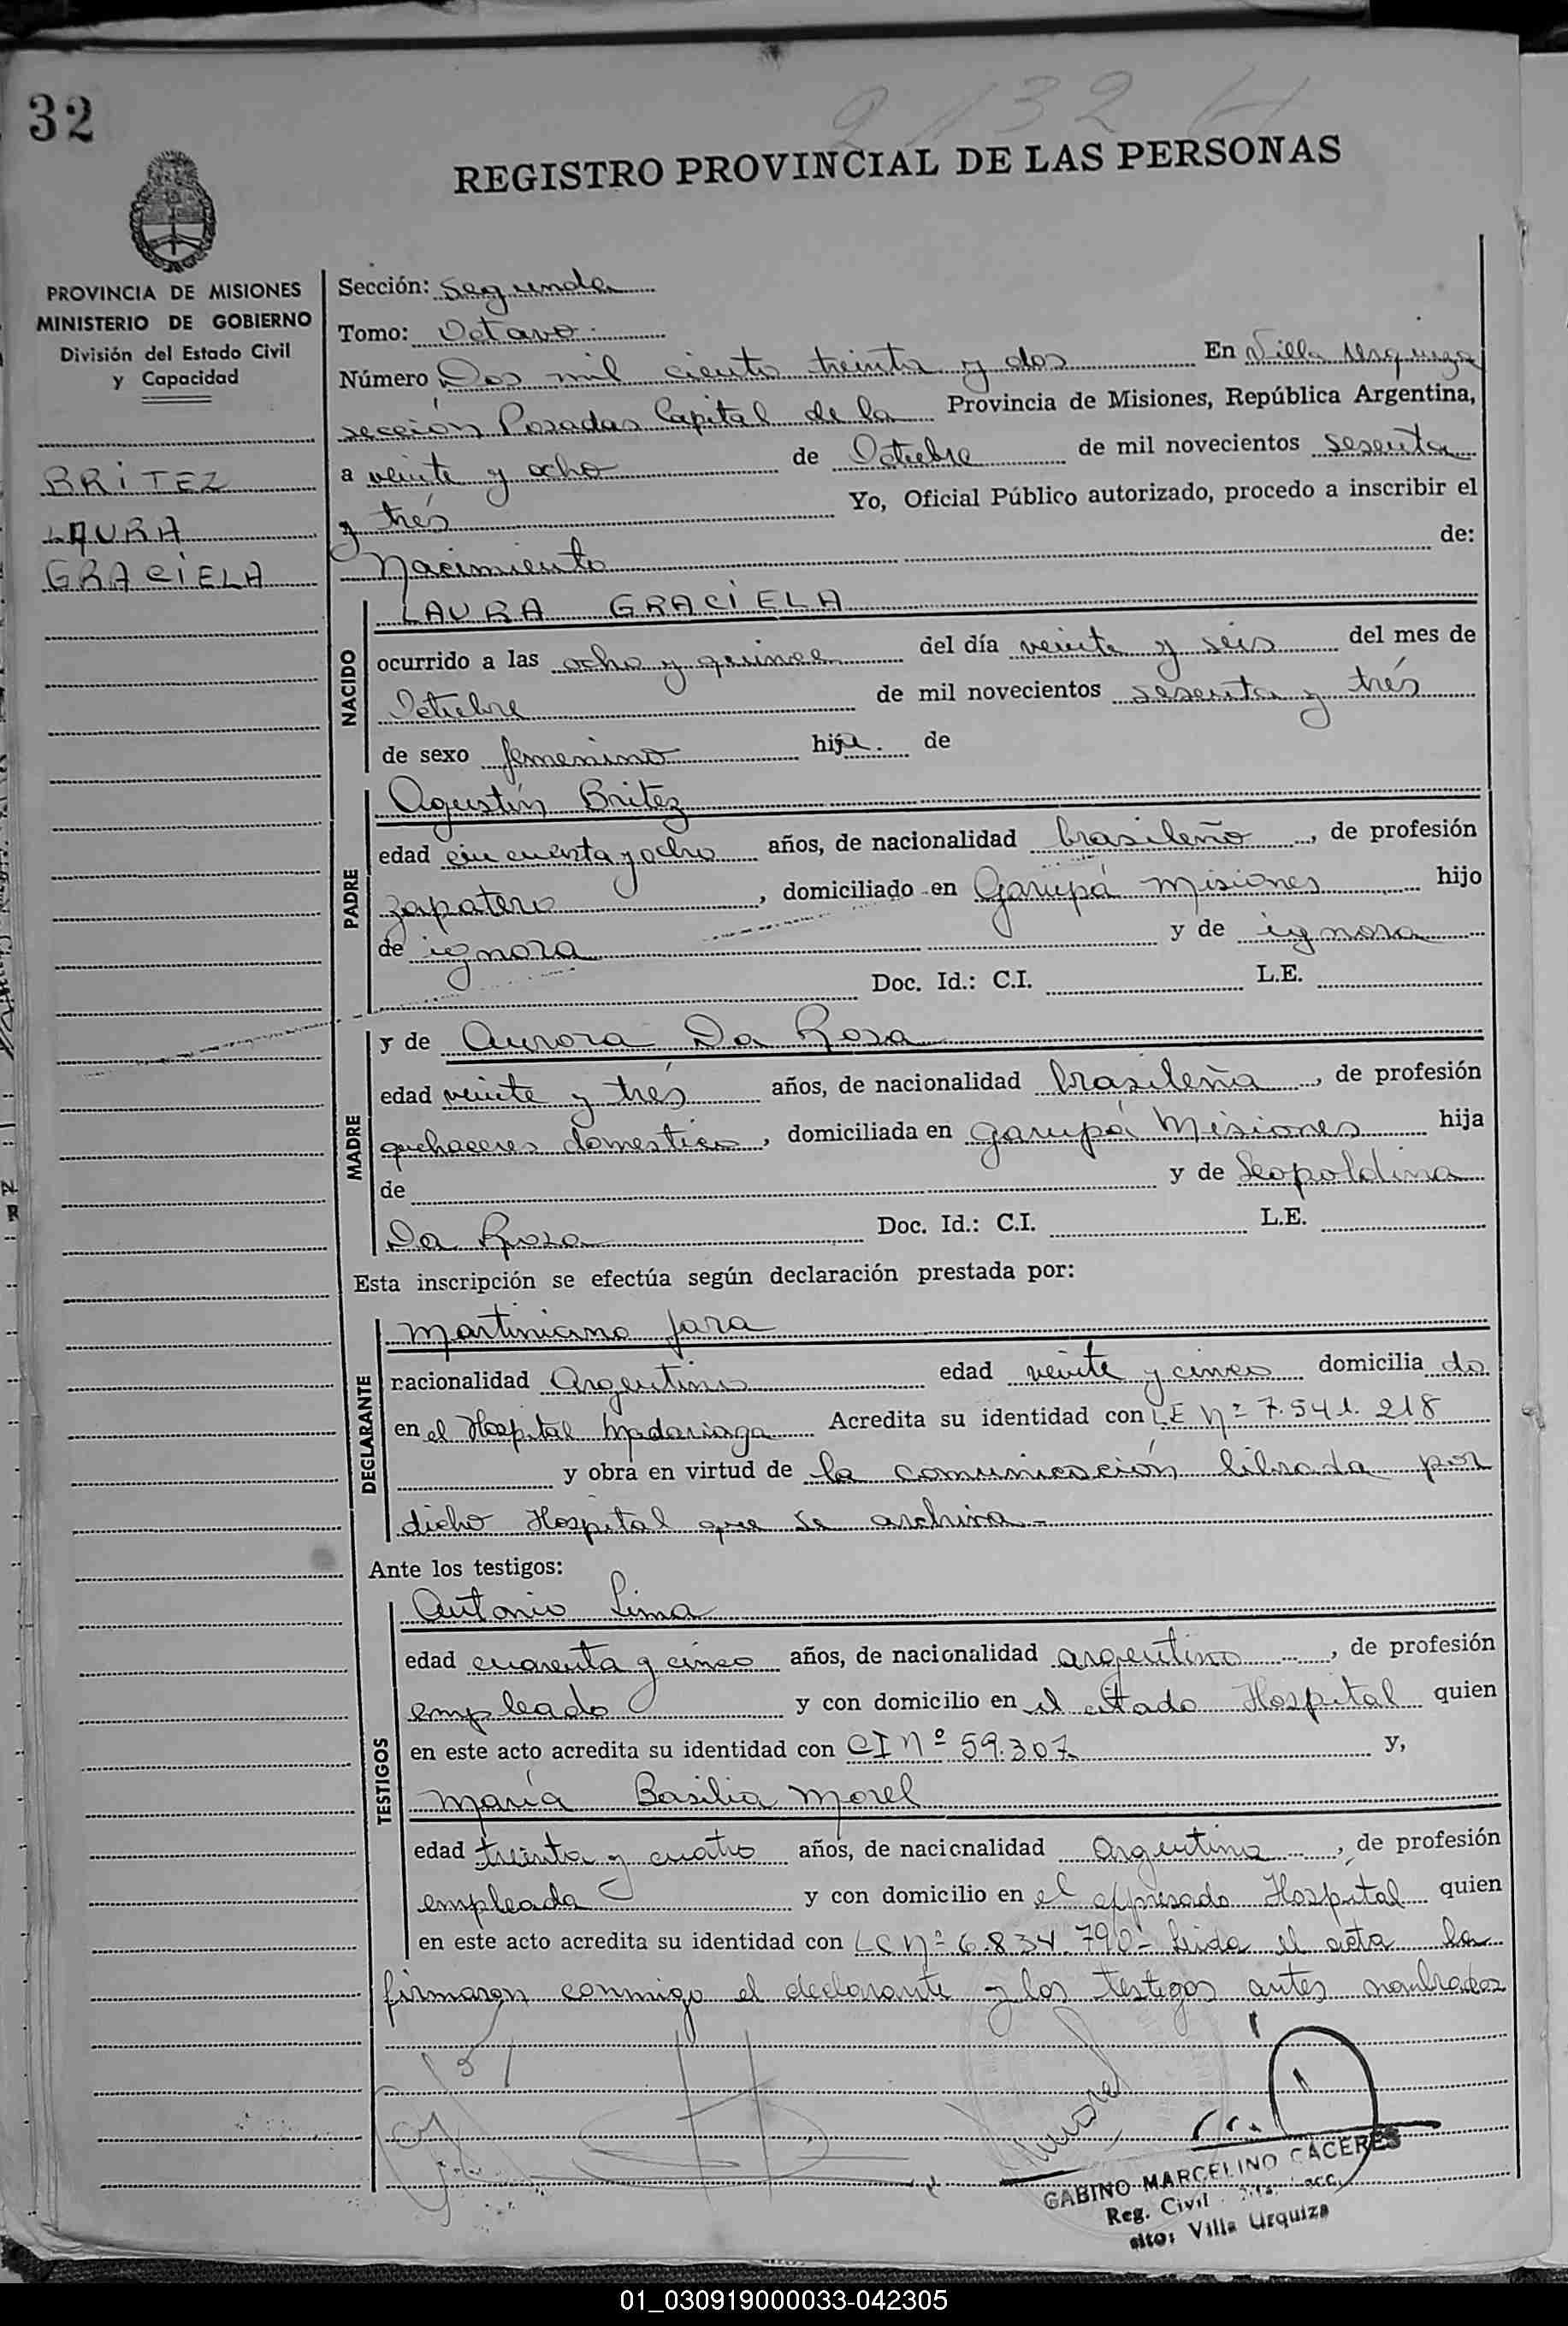 32
2132 H
REGISTRO PROVINCIAL DE LAS PERSONAS
PROVINCIA DE MISIONES
MINISTERIO DE GOBIERNO
División del Estado Civil
y Capacidad
BRITEZ
LAURA
GRACIELA
Sección: Segunda
Tomo: Octavo.
Número Dos mil ciento treinta y dos En Villa Urquiza
sección Posadas Capital de la Provincia de Misiones, República Argentina,
a veinte y ocho de Octubre de mil novecientos sesenta
y trés Yo, Oficial Público autorizado, procedo a inscribir el
Nacimiento de:
NACIDO
LAURA GRACIELA
ocurrido a las ocho y quince del día veinte y seis del mes de
Octubre de mil novecientos sesenta y trés
de sexo femenino hija. de
PADRE
Agustín Britez
edad cincuenta y ocho años, de nacionalidad brasileño, de profesión
zapatero, domiciliado en Garupá Misiones hijo
de ignora y de ignora
Doc. Id.: C.I. L.E.
MADRE
y de Aurora Da Rosa
edad veinte y trés años, de nacionalidad brasileña, de profesión
quehaceres domesticos, domiciliada en Garupá Misiones hija
de y de Leopoldina
Da Rosa Doc. Id.: C.I. L.E.
Esta inscripción se efectúa según declaración prestada por:
DECLARANTE
Martiniano Jara
nacionalidad Argentino edad veinte y cinco domicilia do
en el Hospital Madariaga Acredita su identidad con LE Nº 7.541.218
y obra en virtud de la comunicación librada por
dicho Hospital que se archiva.-
Ante los testigos:
TESTIGOS
Antonio Lima
edad cuarenta y cinco años, de nacionalidad argentino, de profesión
empleado y con domicilio en el citado Hospital quien
en este acto acredita su identidad con CI Nº 59.307 y,
María Basilia Morel
edad treinta y cuatro años, de nacionalidad Argentina, de profesión
empleada y con domicilio en el expresado Hospital quien
en este acto acredita su identidad con LC Nº 6.834.790- Leida el acta la
firmaron conmigo el declarante y los testigos antes nombrados
GABINO MARCELINO CACERES
Reg. Civil
sito: Villa Urquiza
01_030919000033-042305